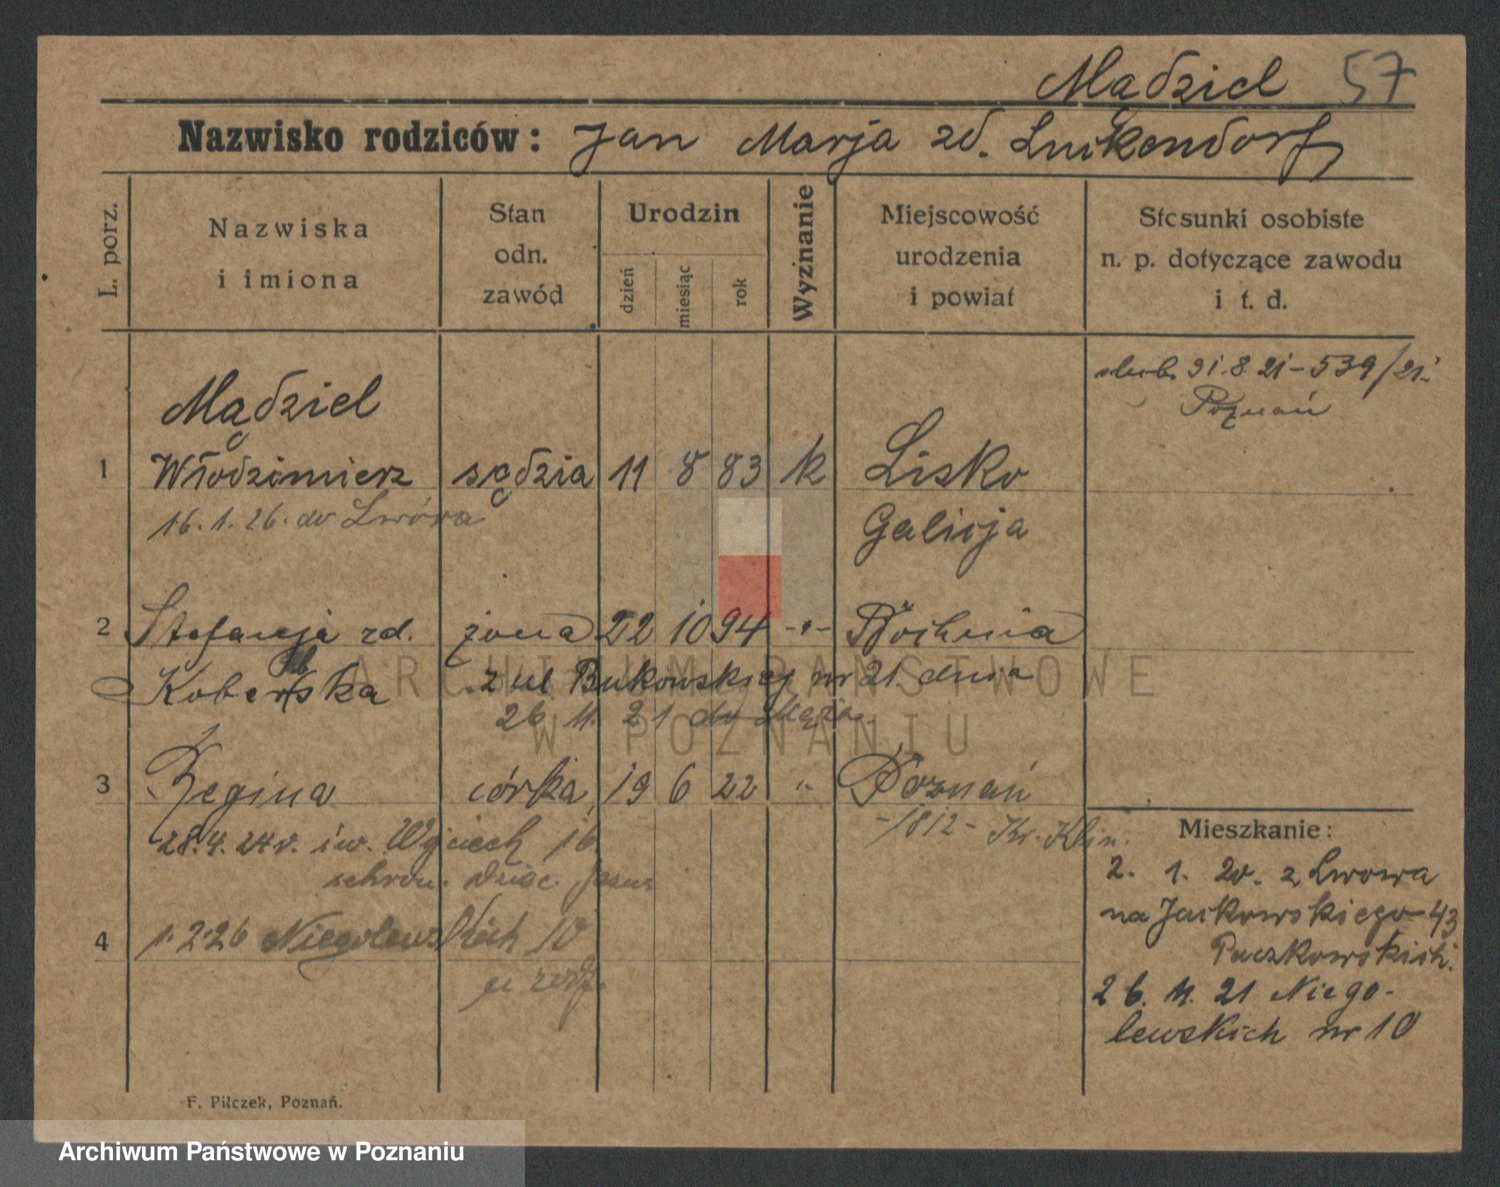 Mądziel 57
Nazwisko rodziców: Jan Marja zd. Luikendorf
L. porz.
Nazwiska
i imiona
Stan
odn.
zawód
Urodzin
dzień
miesiąc
rok
Wyznanie
Miejscowość
urodzenia
i powiat
Stosunki osobiste
n. p. dotyczące zawodu
i t. d.
ślub. 31.8.21 - 539/21.
Poznań
Mądziel
1 Włodzimierz sędzia 11 8 83 k Lisko
16.1.26. do Lwówa
Galicja
2 Stefanja rd. żona 22 10 94 -"- Bochnia
Koberska z ul Bukowskiej nr 21 dnia
26 11. 21 do Męża.
3 Regina córka 19 6 22 " Poznań
-1812-
28.4.24 r. św. Wojciech 16
4 1.2.26 Niegolewskich 10
Mieszkanie:
2. 1. 20. z Lwowa
na Jackowskiego 43
Paczkowskich.
26. 11. 21 Niego-
lewskich nr 10
F. Pilczek, Poznań.
ARCHIWUM PAŃSTWOWE
W POZNANIU
Archiwum Państwowe w Poznaniu